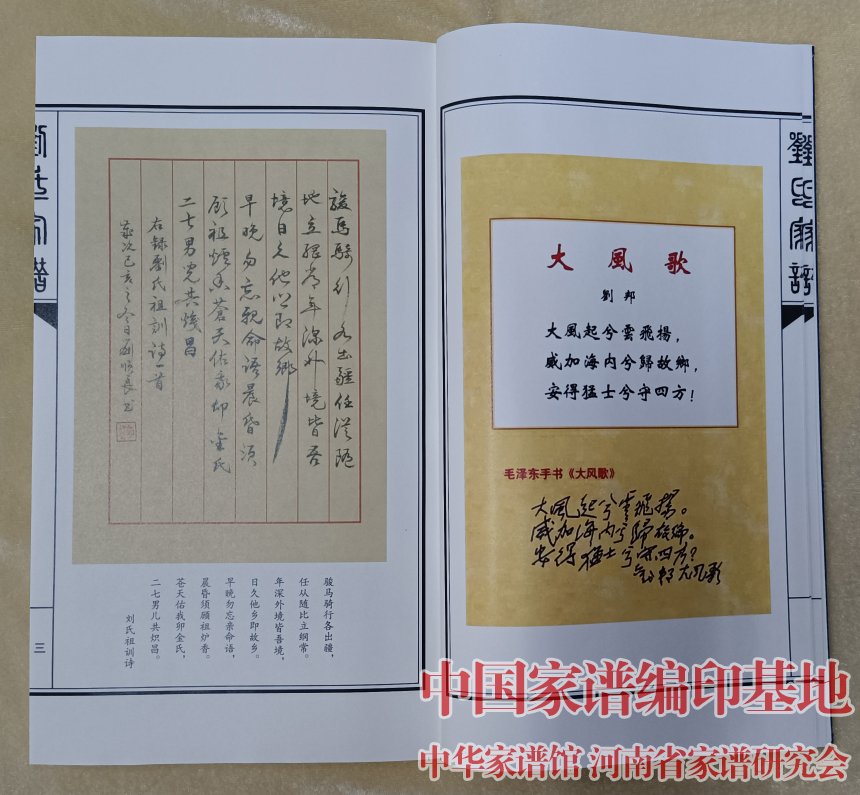 劉氏家譜
大風歌
劉邦
大風起兮雲飛揚，
威加海内兮歸故鄉，
安得猛士兮守四方！
毛泽东手书《大风歌》
大風起兮雲飛揚。
威加海内兮歸故鄉。
安得猛士兮守四方？
劉邦大风歌
劉氏家譜
駿馬騎行各出疆任從隨
地立綱常年深外境皆吾
境日久他鄉即故鄉
早晚勿忘親命語晨昏須
顧祖爐香蒼天佑我卯金氏
二七男兒共熾昌
右錄劉氏祖訓詩一首
歲次己亥之冬日劉順良书
骏马骑行各出疆，
任从随比立纲常。
年深外境皆吾境，
日久他乡即故乡。
早晚勿忘亲命语，
晨昏须顾祖炉香。
苍天佑我卯金氏，
二七男儿共炽昌。
刘氏祖训诗
三
中国家谱编印基地
中华家谱馆 河南省家谱研究会